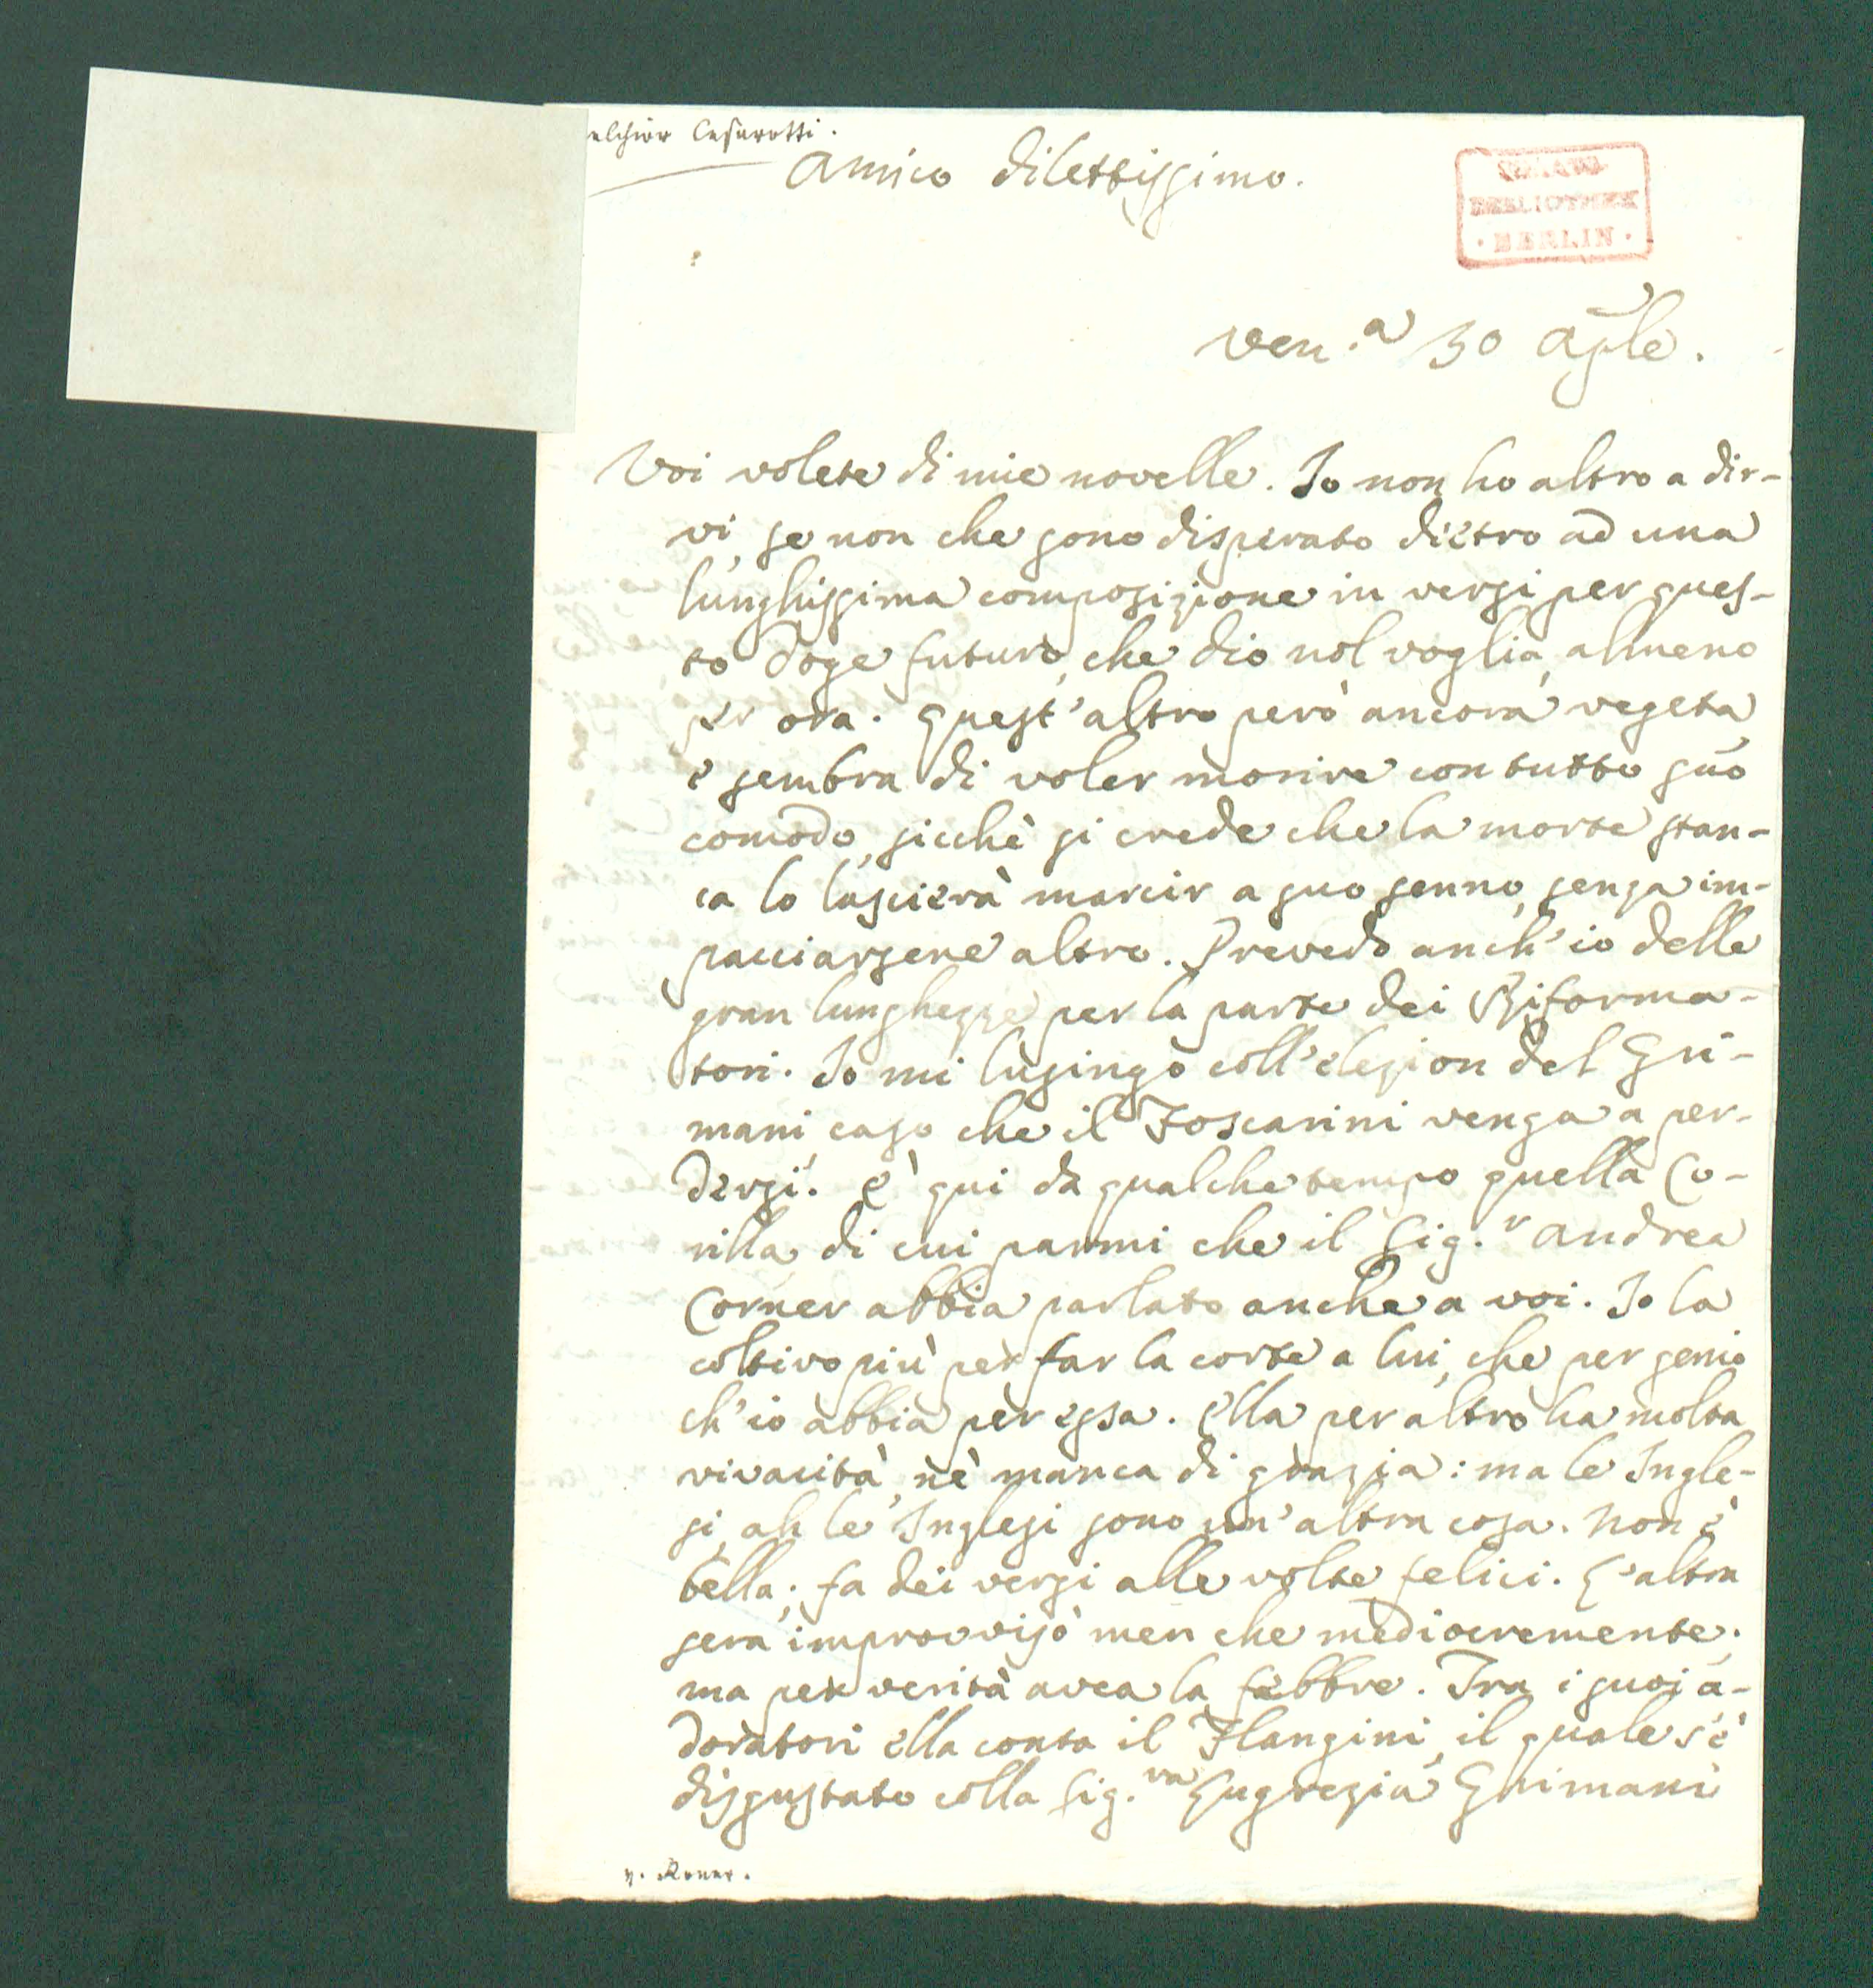 elchior Cesarotti.
Amico dilettissimo.
BIBLIOTHEK
· BERLIN ·
Ven.a 30 Aple.
Voi volete di mie novelle. Io non ho altro a dir-
vi, se non che sono disperato dietro ad una
lunghissima composizione in versi per ques-
to Doge futuro, che dio nol voglia, almeno
per ora. Quest'altro però ancora vegeta,
e sembra di voler morire con tutto suo
comodo, sicchè si crede che la morte stan-
ca lo lascierà marcir a suo senno, senza im-
pacciarsene altro. Prevedo anch'io delle
gran lunghezze per la parte dei Riforma-
tori. Io mi lusingo coll'elezion del Gri-
mani, caso che il Foscarini venga a per-
dersi. È qui da qualche tempo quella Co-
rilla, di cui parmi che il Sig.r Andrea
Corner abbia parlato anche a voi. Io la
coltivo più per far la corte a lui, che per genio
ch'io abbia per essa. Ella per altro ha molta
vivacità, nè manca di grazia: ma le Ingle-
si, ah le Inglesi sono un'altra cosa. Non è
bella; fa dei versi alle volte felici. L'altra
sera improvvisò men che mediocremente;
ma per verità avea la febbre. Tra i suoi a-
doratori ella conta il Flangini, il quale s'è
disgustato colla Sig.ra Lugrezia Grimani